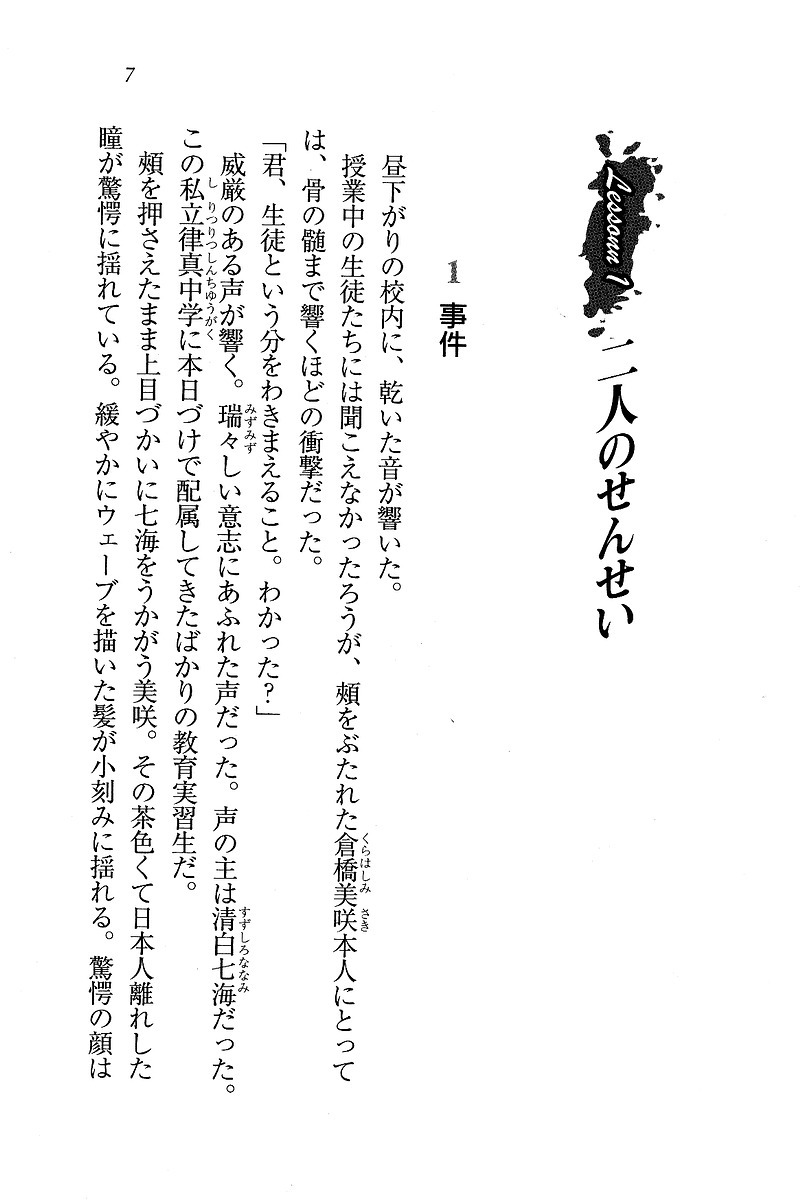 7
Lessonn 1
二人のせんせい
1 事件
昼下がりの校内に、乾いた音が響いた。
授業中の生徒たちには聞こえなかったろうが、頬をぶたれた倉橋美咲本人にとって
くらはしみ さき
は、骨の髄まで響くほどの衝撃だった。
「君、生徒という分をわきまえること。わかった?」
威厳のある声が響く。瑞々しい意志にあふれた声だった。声の主は清白七海だった。
みずみず
すずしろななみ
この私立律真中学に本日づけで配属してきたばかりの教育実習生だ。
しりつりつしんちゆうがく
頬を押さえたまま上目づかいに七海をうかがう美咲。その茶色くて日本人離れした
瞳が驚愕に揺れている。緩やかにウェーブを描いた髪が小刻みに揺れる。驚愕の顔は